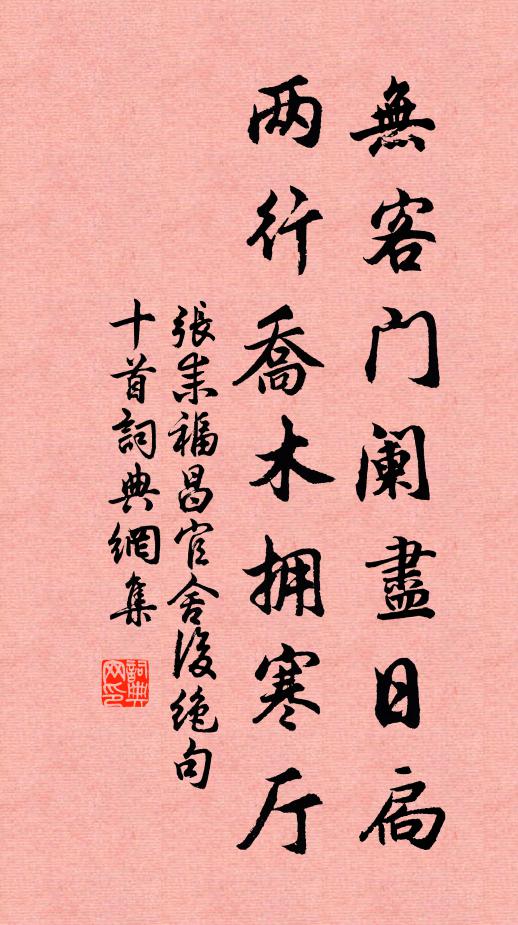 無客门阑盡日扃
两行喬木拥寒厅
張耒福昌官舍後絶句
十首詞典網集
詞典
网印